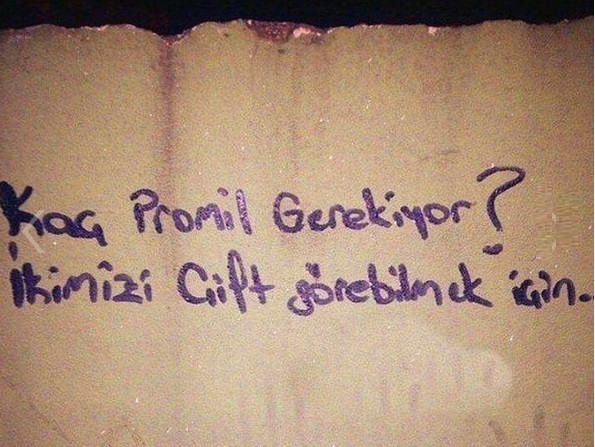 Kaç Promil Gerekiyor?
İkimizi Çift görebilmek için..